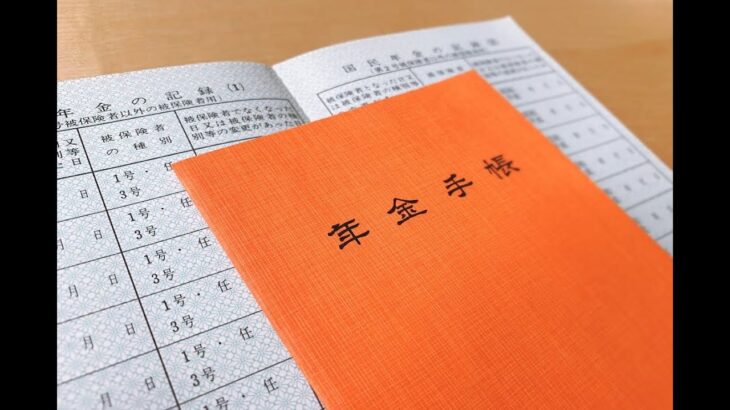 年金の記録 (1)
号被保険者以外の被保険者用)
被保険者
の種別
被保険者でなくなっ
日又は被保険者の
別等の変更があっ
日
1号・任
3号
月 日
1号・任
3号
月 日
1号・任
3号
月 日
1号・任
3号
月 日
1号・任
3号
月 日
1号・任
3号
国民年金の記録
被保険者となった日又
は被保険者の種別等
年金手帳